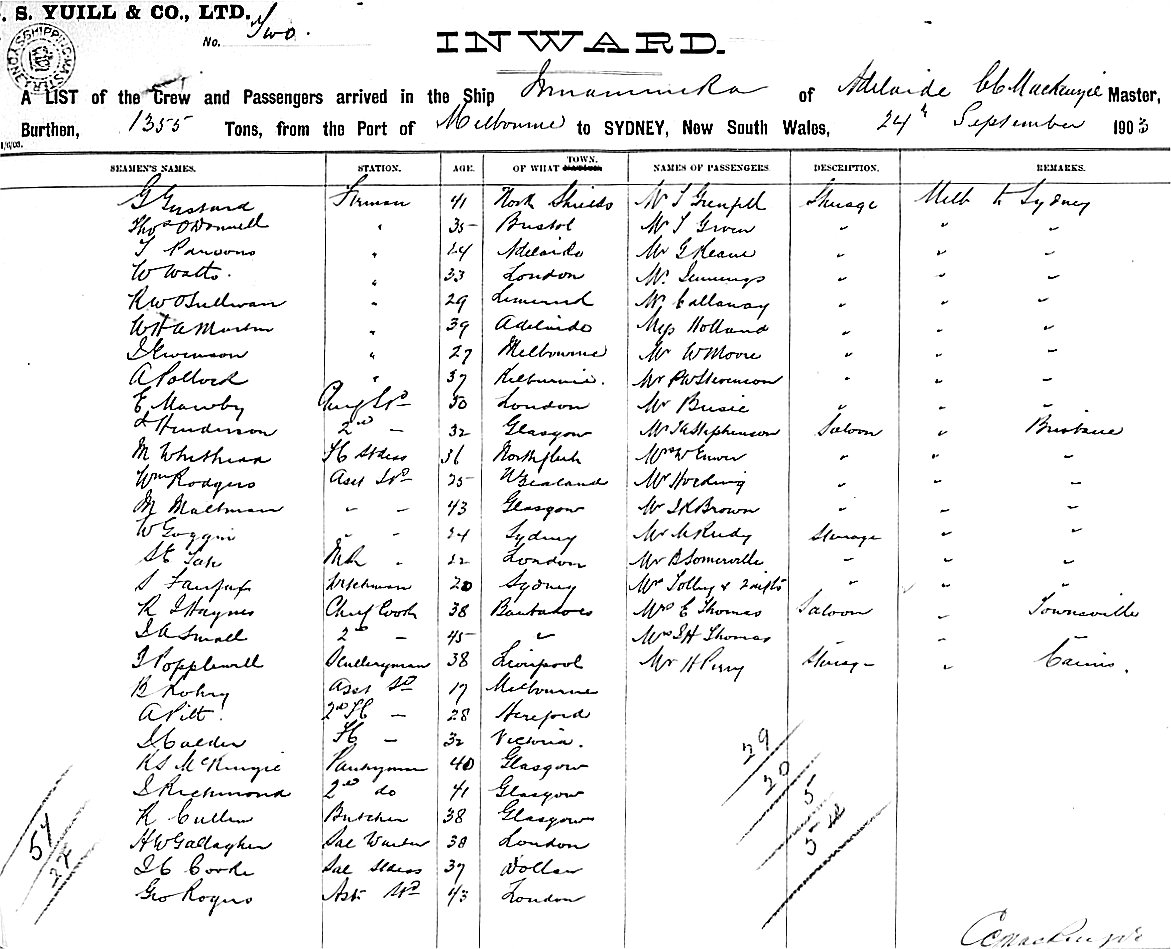 . S. YUILL & CO., LTD.
No. Two.
INWARD.
A LIST of the Crew and Passengers arrived in the Ship Innamincka of Adelaide CC Mackenzie Master,
Burthen, 1355 Tons, from the Port of Melbourne to SYDNEY, New South Wales, 24th September 1903
SEAMEN'S NAMES. STATION. AGE. OF WHAT TOWN. NAMES OF PASSENGERS DESCRIPTION. REMARKS.
G Gustard Fireman 41 North Shields Mr J Grenfell Steerage Melb to Sydney
Thos O'Donnell " 35 Bristol Mr J " " "
J Parsons " 24 Adelaide Mr G Keane " " "
W Watts. " 33 London Mr Jennings " " "
R W O'Sullivan " 29 Limerick Mr Callaway " " "
W H A Martin " 39 Adelaide Miss Holland " " "
J Evenson " 27 Melbourne Mr W Moore " " "
A Pollock " 37 Kilburnie. Mr P W Stevenson " " "
E Mawby 30 London Mr Busie " " "
J Henderson 2nd - 32 Glasgow Mr Stephenson Saloon " Brisbane
M Whithead FC Stdess 36 Northfleet Mrs W " " "
Wm Rodgers Asst Std 25 N Zealand Mr Harding " " "
M Maltman " " 43 Glasgow Mr J K Brown " " "
W Goggin " " 24 Sydney Mr Steerage " "
22 London Mr B Somerville " " "
S Fairfax 20 Sydney Mrs Tolley & 2 infts " " "
R J Haynes Chief Cook 38 Barbadoes Mrs E Thomas Saloon " Townsville
J A Small 2nd - 45 " Mrs J H Thomas " " "
J Popplewell Sculleryman 38 Liverpool Mr H Perry Steerage " Cairns.
Asst Std 17 Melbourne
A Pitt. 2nd FC - 28 Hereford
J Calder FC - 32 Victoria.
R S McKenzie Pantryman 40 Glasgow
J Richmond 2nd do 41 Glasgow
R Cullen Butcher 38 Glasgow
H W Gallagher Sal Waiter 38 London
J C Cooke Sal Stdess 37 Dollar
Geo Rogers Asst Std 43 London
29
20
5
5
57
27
CC Mackenzie